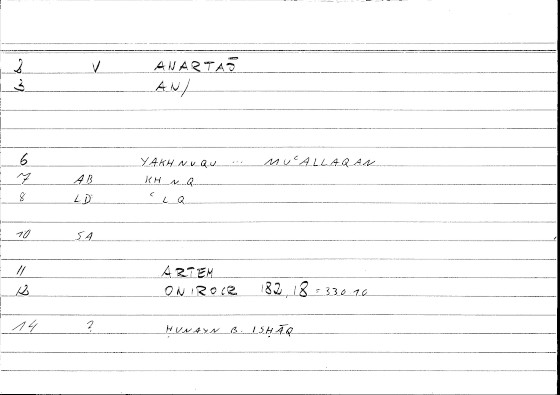 2 V ANARTAŠ
3 AN/
6 YAKHNUQU ... MUʿALLAQAN
7 AB KH N Q
8 LD ʿ L Q
10 SA
11 ARTEM
12 ONIROCR 182,18 = 330 10
14 ? ḤUNAYN B. ISḤĀQ